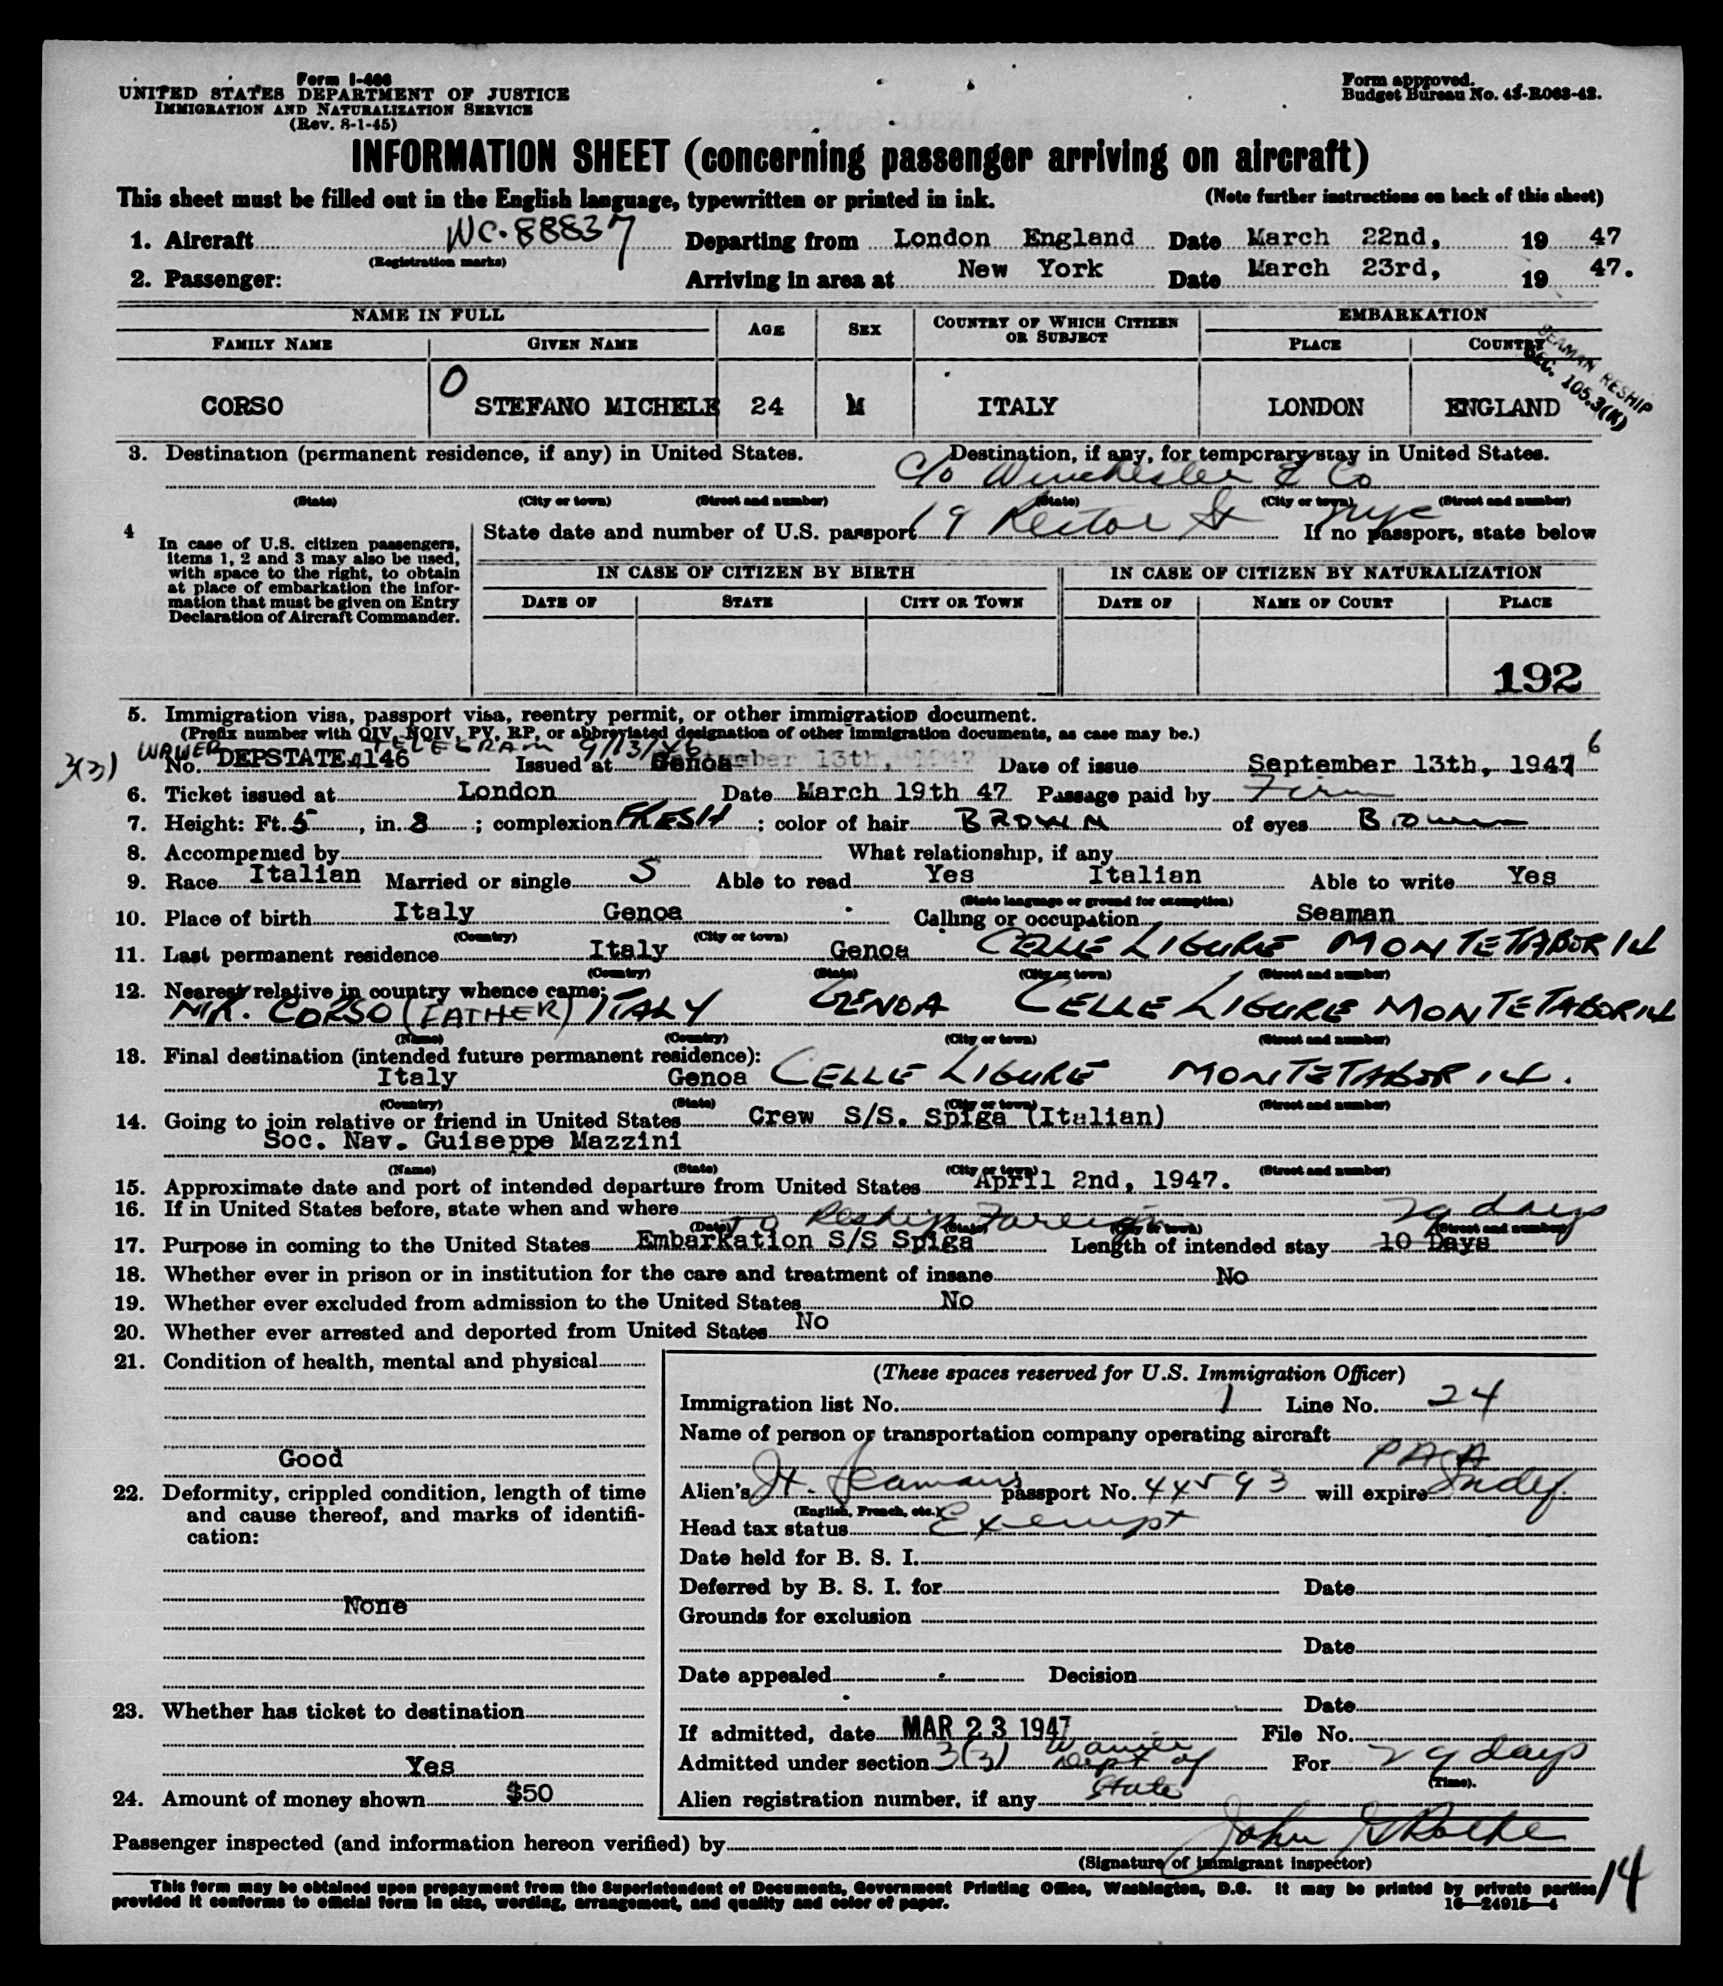 Form I-466
UNITED STATES DEPARTMENT OF JUSTICE
IMMIGRATION AND NATURALIZATION SERVICE
(Rev. 8-1-45)
Form approved.
Budget Bureau No. 43-R063-42.
INFORMATION SHEET (concerning passenger arriving on aircraft)
This sheet must be filled out in the English language, typewritten or printed in ink. (Note further instructions on back of this sheet)
1. Aircraft NC-88837 Departing from London England Date March 22nd, 19 47
(Registration marks)
2. Passenger: Arriving in area at New York Date March 23rd, 19 47.
NAME IN FULL AGE SEX COUNTRY OF WHICH CITIZEN OR SUBJECT EMBARKATION
FAMILY NAME GIVEN NAME PLACE COUNTRY
SEAMAN RESHIP
SEC. 105.3(K)
CORSO O STEFANO MICHELE 24 M ITALY LONDON ENGLAND
3. Destination (permanent residence, if any) in United States. Destination, if any, for temporary stay in United States.
c/o Winchester & Co
(State) (City or town) (Street and number) (State) (City or town) (Street and number)
4 In case of U.S. citizen passengers, items 1, 2 and 3 may also be used, with space to the right, to obtain at place of embarkation the information that must be given on Entry Declaration of Aircraft Commander.
State date and number of U.S. passport 19 Rector St nyc If no passport, state below
IN CASE OF CITIZEN BY BIRTH IN CASE OF CITIZEN BY NATURALIZATION
DATE OF STATE CITY OR TOWN DATE OF NAME OF COURT PLACE
192
5. Immigration visa, passport visa, reentry permit, or other immigration document.
(Prefix number with QIV, NQIV, PV, RP, or abbreviated designation of other immigration documents, as case may be.)
3(3) WAIVER TELEGRAM 9/13/46
No. DEPSTATE 4146 Issued at Genoa Date of issue September 13th, 1947 6
6. Ticket issued at London Date March 19th 47 Passage paid by Firm
7. Height: Ft. 5, in. 8; complexion FRESH; color of hair BROWN of eyes Brown
8. Accompanied by What relationship, if any
9. Race Italian Married or single S Able to read Yes Italian Able to write Yes
(State language or ground for exemption)
10. Place of birth Italy Genoa Calling or occupation Seaman
(Country) (City or town)
11. Last permanent residence Italy Genoa CELLE LIGURE MONTETABOR 14
(Country) (State) (City or town) (Street and number)
12. Nearest relative in country whence came:
MR. CORSO (FATHER) ITALY GENOA CELLE LIGURE MONTETABOR 14
(Name) (Country) (City or town) (Street and number)
13. Final destination (intended future permanent residence):
Italy Genoa CELLE LIGURE MONTETABOR 14.
(Country) (State) (City or town) (Street and number)
14. Going to join relative or friend in United States Crew S/S. Spiga (Italian)
Soc. Nav. Guiseppe Mazzini
(Name) (State) (City or town) (Street and number)
15. Approximate date and port of intended departure from United States April 2nd, 1947.
16. If in United States before, state when and where
(Date) (State) (City or town) (Street and number)
To Reship Foreign 29 days
17. Purpose in coming to the United States Embarkation S/S Spiga Length of intended stay 10 Days
18. Whether ever in prison or in institution for the care and treatment of insane No
19. Whether ever excluded from admission to the United States No
20. Whether ever arrested and deported from United States No
21. Condition of health, mental and physical
Good
22. Deformity, crippled condition, length of time and cause thereof, and marks of identification:
None
23. Whether has ticket to destination
Yes
24. Amount of money shown $50
(These spaces reserved for U.S. Immigration Officer)
Immigration list No. 1 Line No. 24
Name of person or transportation company operating aircraft
PAA
Alien's It. Seaman's passport No. 44593 will expire Indef.
(English, French, etc.)
Head tax status Exempt
Date held for B. S. I.
Deferred by B. S. I. for Date
Grounds for exclusion
Date
Date appealed Decision
Date
If admitted, date MAR 23 1947 File No.
Admitted under section 3(3) Waiver Dept of State For 29 days
(Time).
Alien registration number, if any
Passenger inspected (and information hereon verified) by
(Signature of immigrant inspector)
14
This form may be obtained upon prepayment from the Superintendent of Documents, Government Printing Office, Washington, D.C. It may be printed by private parties
provided it conforms to official form in size, wording, arrangement, and quality and color of paper. 16—24915-4